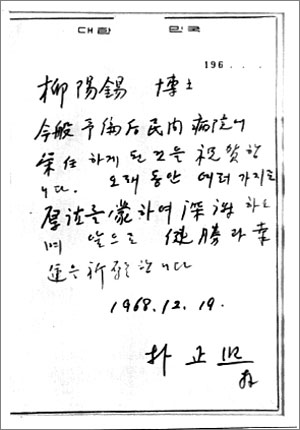 대한 민국
196 . . .
柳陽錫 博士
今般 予備后 民間 病院에
榮任 하게 된 것을 祝賀합
니다. 오래 동안 여러 가지로
厚誼를 蒙하여 深謝하오
며 앞으로 健勝과 幸
運을 祈願합니다
1968.12.19.
朴正熙